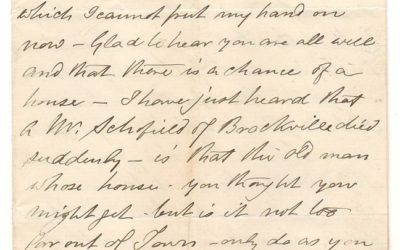 which I cannot put my hand on
now - Glad to hear you are all well
and that there is a chance of a
house - I have just heard that
a Mr. Schofield of Brockville died
suddenly - is that the old man
whose house - you thought you
might get - but is it not too
far out of Town - only do as you